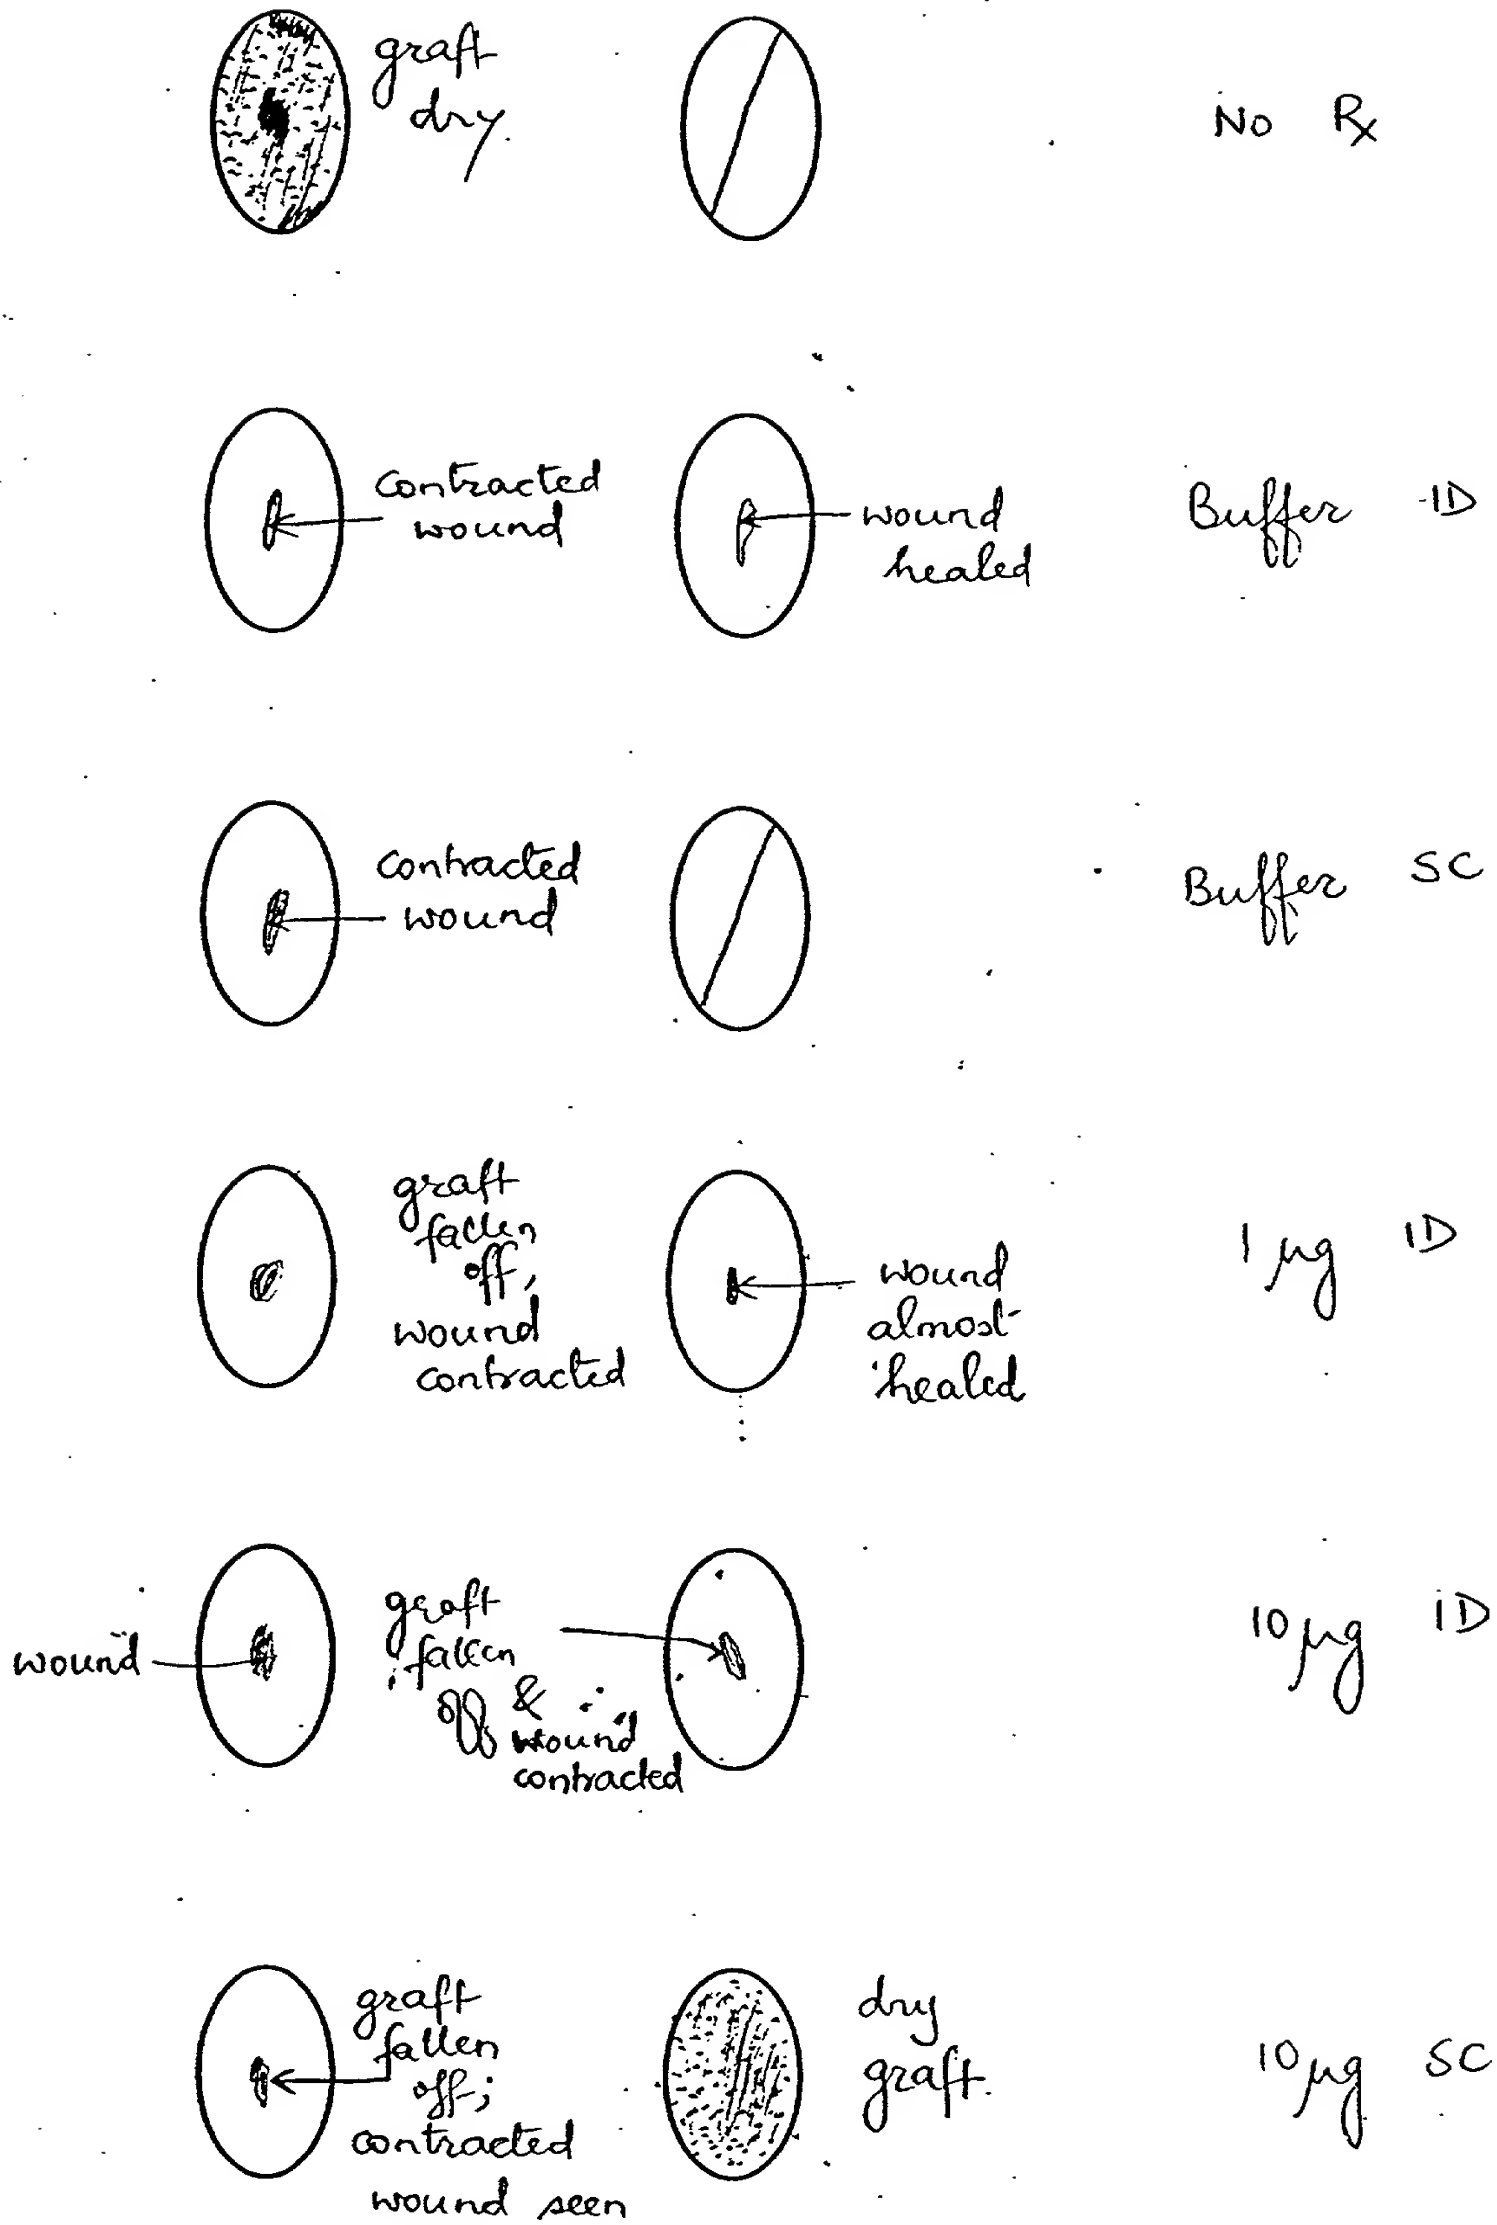 graft
dry.
No Rx
contracted
wound
wound
healed
Buffer ID
contracted
wound
Buffer SC
graft
fallen
off,
wound
contracted
wound
almost
healed
1 µg ID
wound
graft
fallen
off &
wound
contracted
10 µg ID
graft
fallen
off;
contracted
wound seen
dry
graft.
10 µg SC